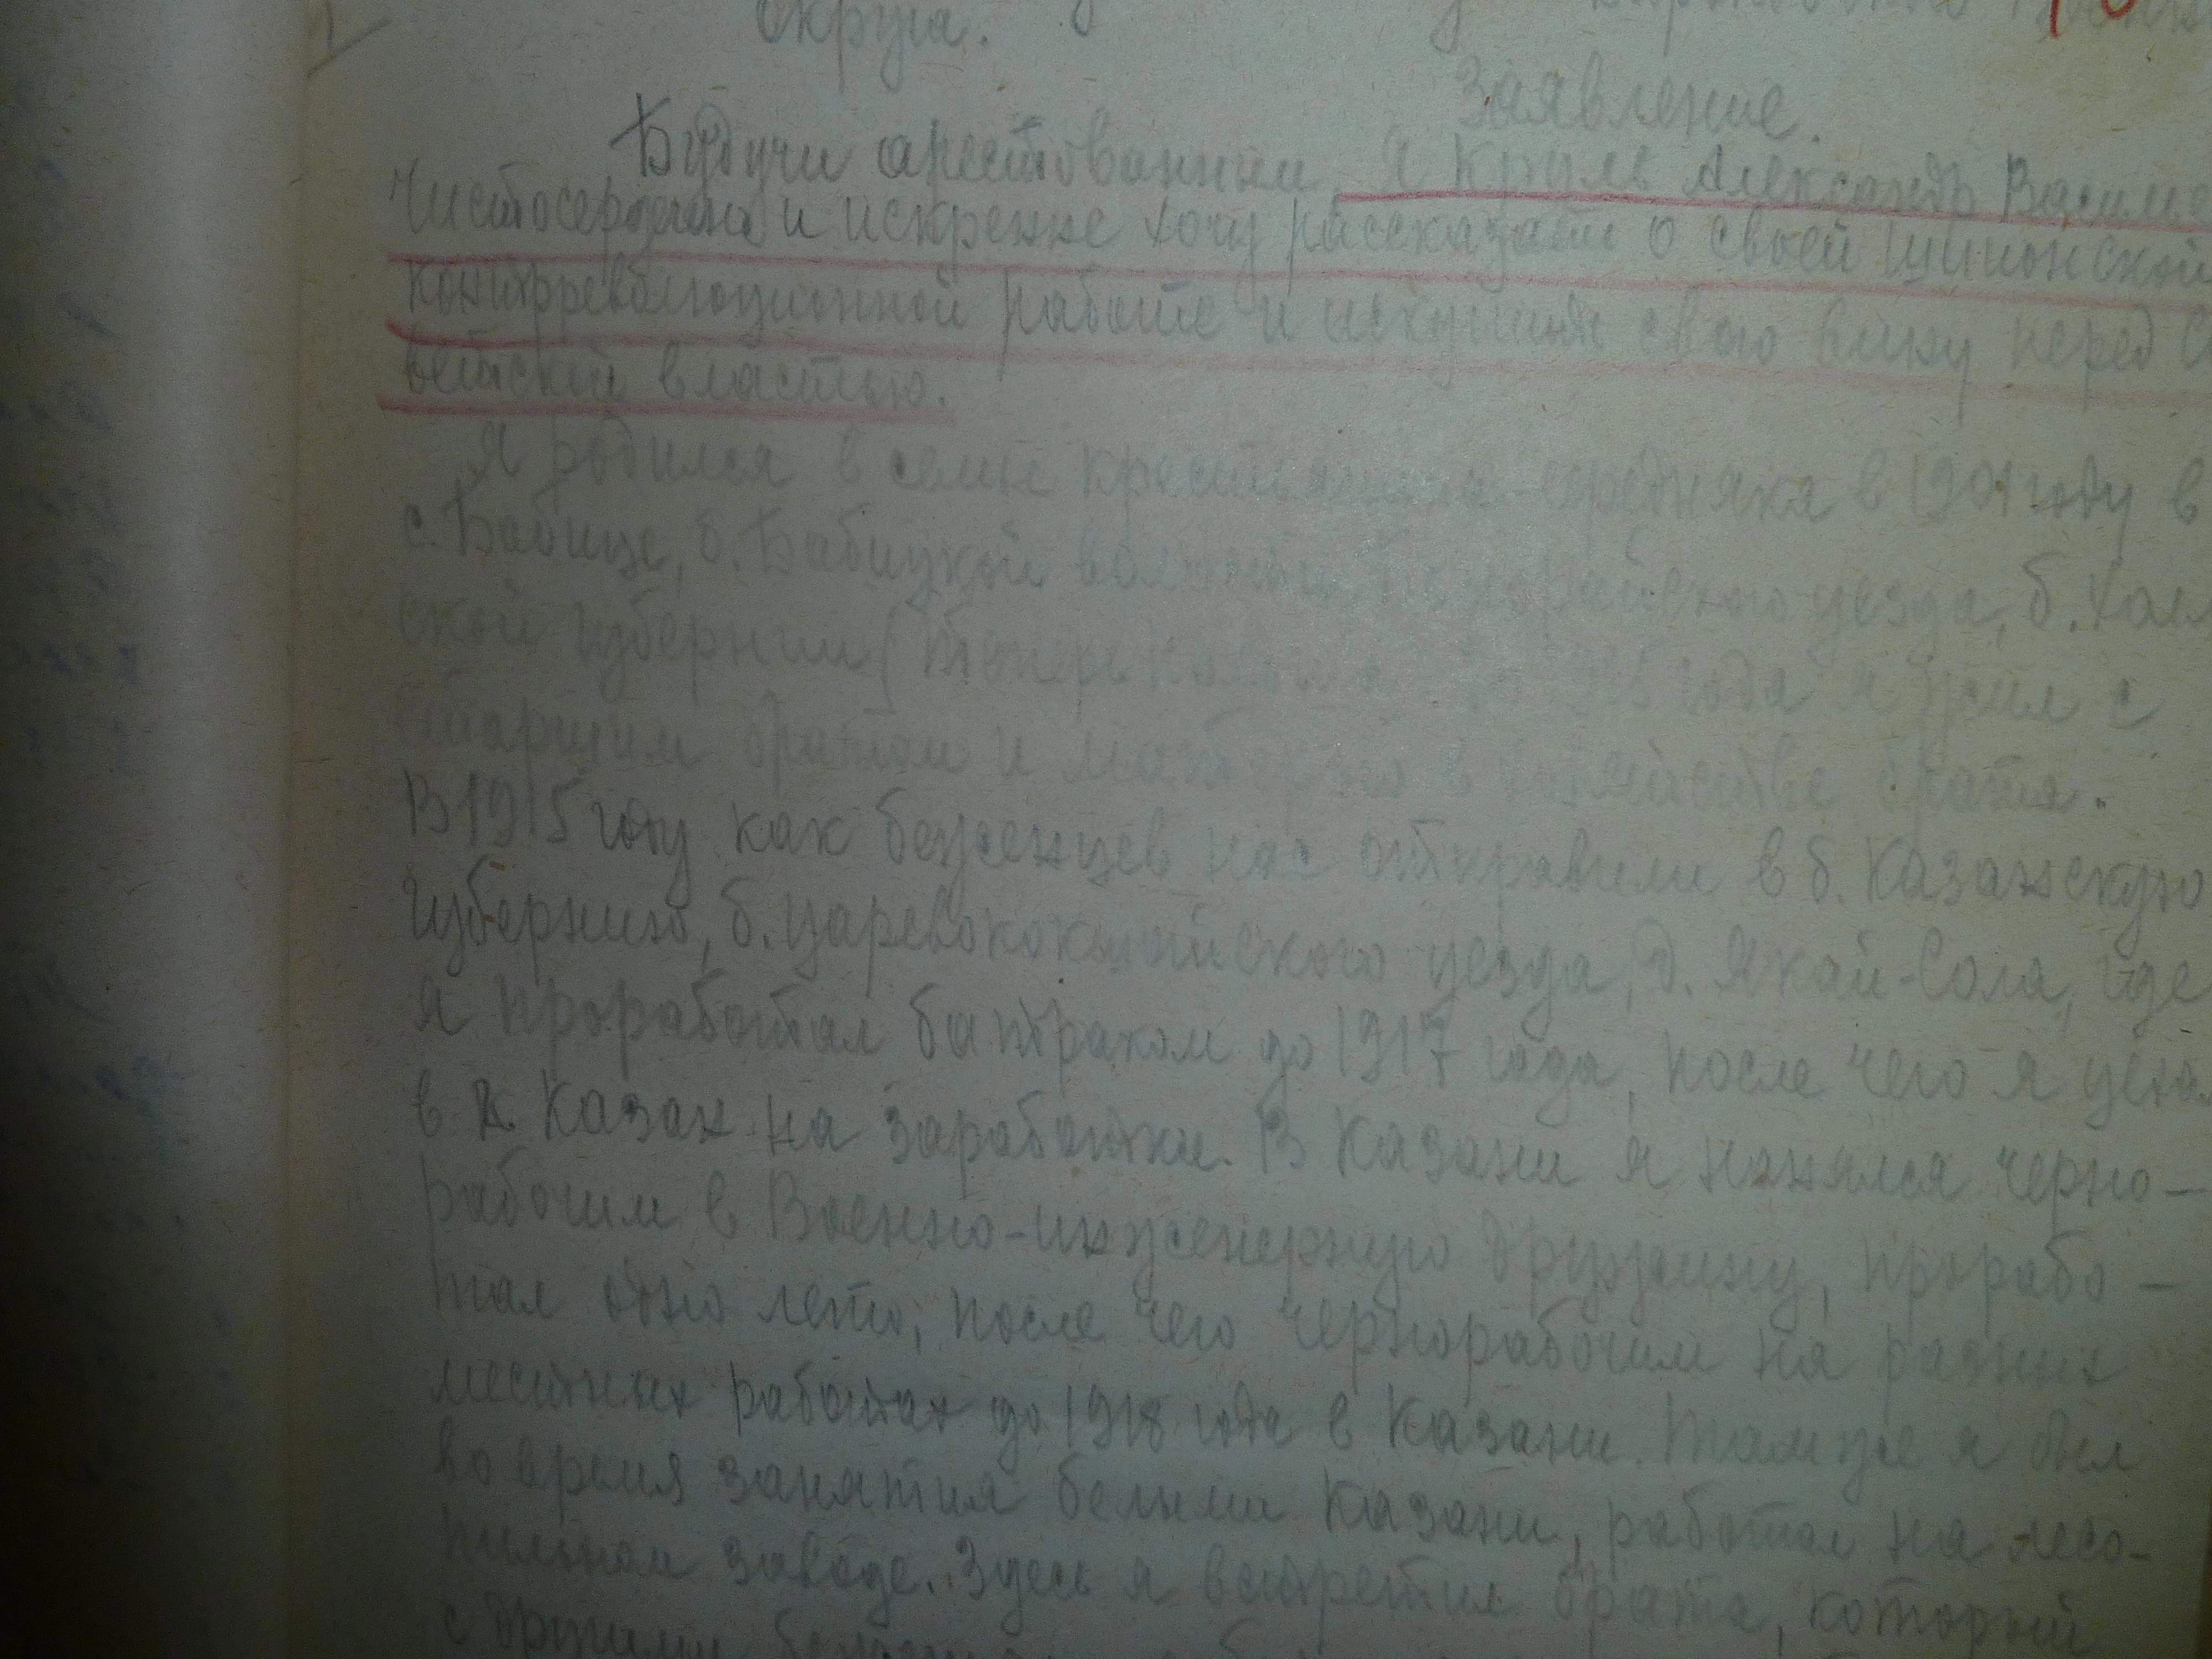 округа.
Заявление.
Будучи арестованным, я Крыль Александр Василь
Чистосердечно и искренне хочу рассказать о своей шпионской
контрреволюционной работе и искупить свою вину перед Со
ветской властью.
Я родился в семье крестьянина-середняка в 1901 году в
с. Бабице, б. Бабицкой волости, уезда, б. Холм
ской губернии (теперь года я жил с
старшим братом и матерью в хозяйстве брата.
В 1915 году как беженцев нас отправили в б. Казанскую
губернию, б. Царевококшайского уезда, д. Якай-Сола, где
я проработал батраком до 1917 года, после чего я уехал
в Казан на заработки. В Казани я нанялся черно-
рабочим в Военно-инженерную дружину, прорабо-
тал одно лето, после чего чернорабочим на разных
местных работах до 1918 года в Казани. Там же я был
во время занятия белыми Казани, работал на лесо-
пильном заводе. Здесь я встретил брата, который
с другими